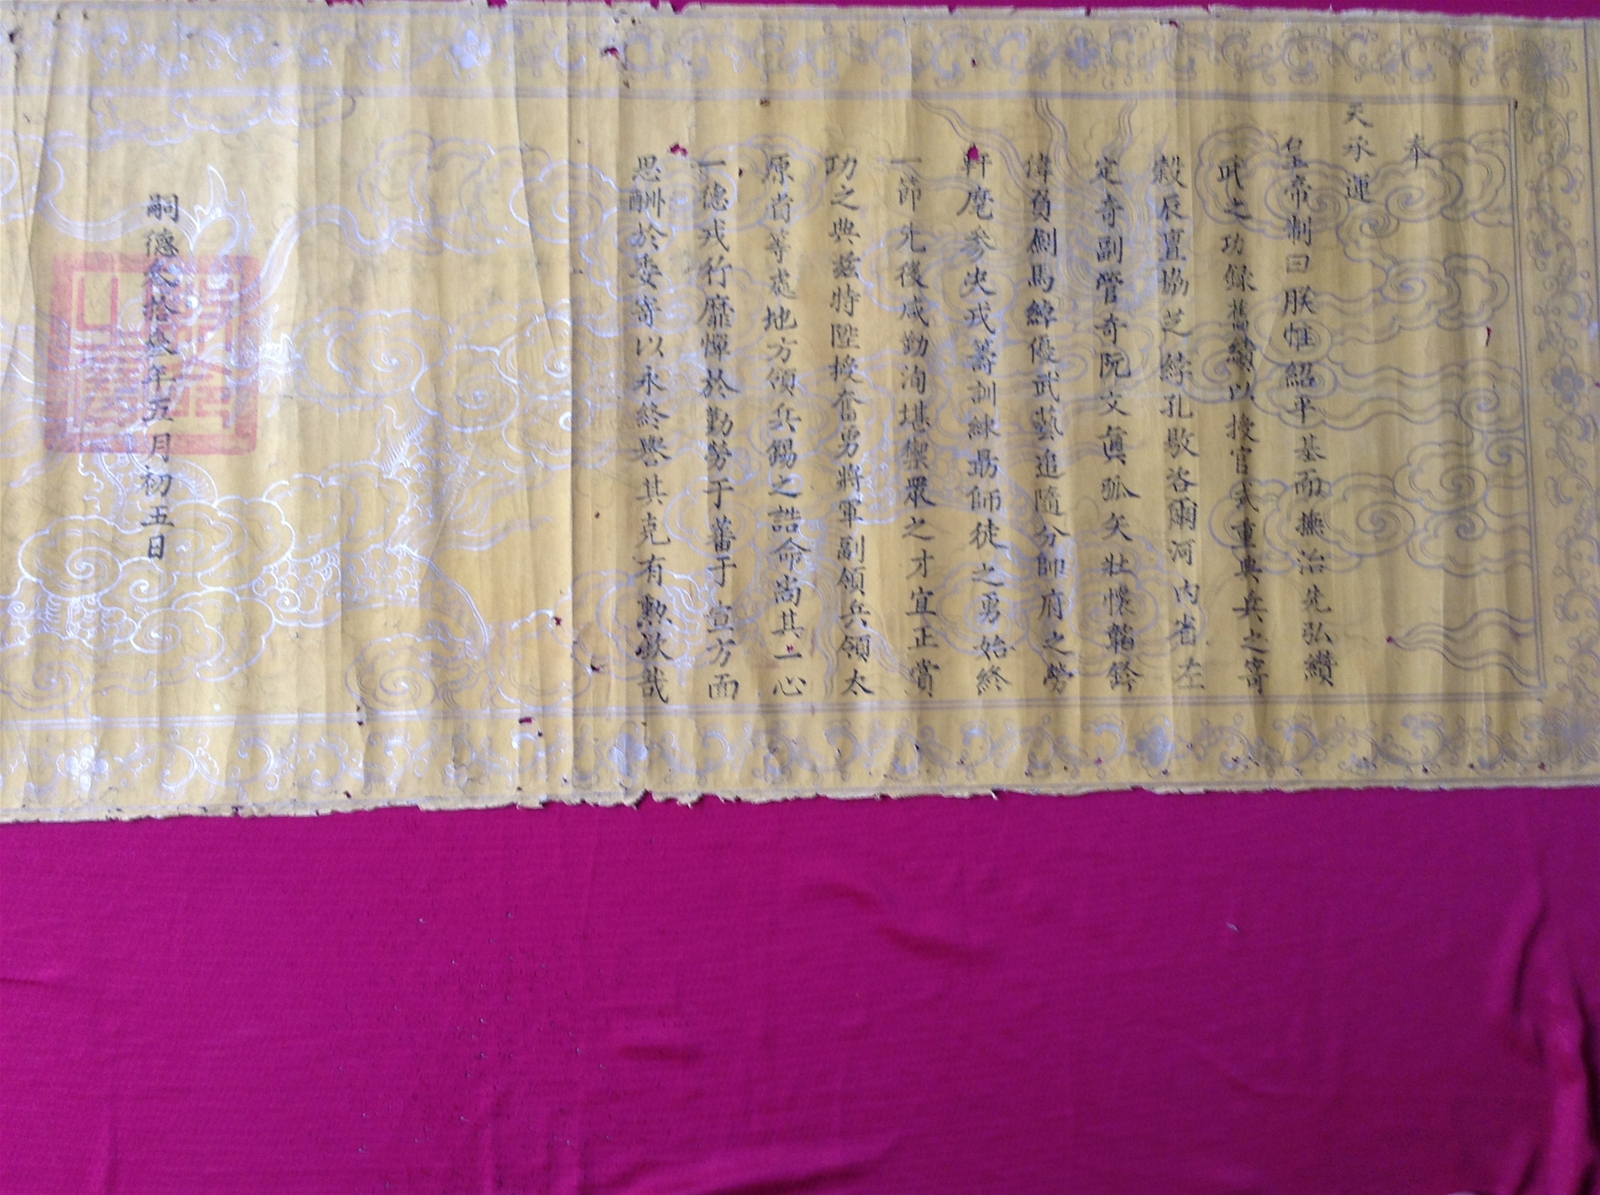 奉
天承運
皇帝制曰朕惟紹平基而撫治先弘纘
武之功錄舊績以授官式重典兵之寄
穀辰亶協芝綍孔敭咨爾河內省左
定奇副管奇阮文真弧矢壯懷韜鈐
偉負劍馬綽優武藝追隨分帥府之勞
軒麾參決戎籌訓練勗師徒之勇始終
一節先後咸勤洵堪禦眾之才宜正賞
功之典茲特陞授奮勇將軍副領兵領太
原省等處地方領兵錫之誥命尚其一心
一德戎行靡憚於勤勞于蕃于宣方面
思酬於委寄以永終譽其克有勲欽哉
嗣德叁拾年五月初五日